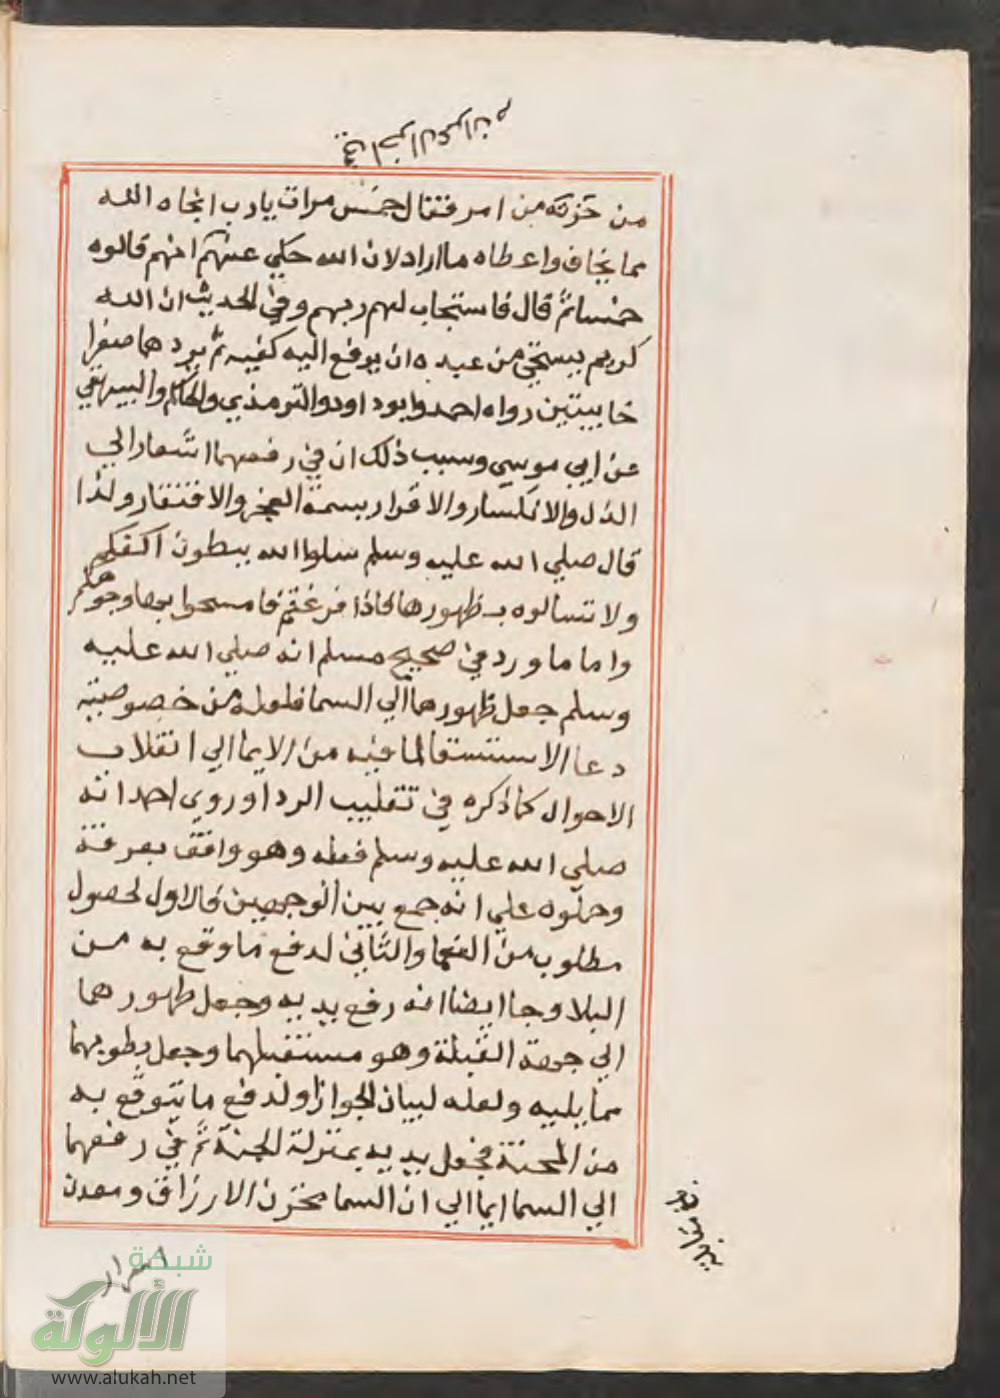 من حزبه من امر فقال خمس مرات يارب انجاه الله
مما يخاف واعطاه ما اراد لان الله حكي عنهم انهم قالوه
خمسا ثم قال فاستجاب لهم ربهم وفي الحديث ان الله
كريم يستحي من عبده ان يرفع اليه كفيه ثم يردهما صفرا
خايبتين رواه احمد وابوداود والترمذي والحاكم والبيهقي
عن ابي موسي وسبب ذلك ان في رفعهما اشعارا الي
الذل والانكسار والاقرار بسمة العجز والافتقار ولذا
قال صلي الله عليه وسلم سلوا الله ببطون اكفكم
ولا تسالوه بظهورها فاذا فرغتم فامسحوا بها وجوهكم
واما ما ورد في صحيح مسلم انه صلي الله عليه
وسلم جعل ظهورهما الي السما فلعله من خصوصية
دعا الاستسقا لما فيه من الايما الي انقلاب
الاحوال كما ذكره في تقليب الردا وروي احمد انه
صلي الله عليه وسلم فعله وهو واقف بعرفة
وحملوه علي انه جمع بين الوجهين فالاول لحصول
مطلوب من النعما والثاني لدفع ما وقع به من
البلا وجا ايضا انه رفع يديه وجعل ظهورهما
الي جهة القبلة وهو مستقبلها وجعل بطونهما
مما يليه ولعله لبيان الجواز او لدفع ما يتوقع به
من المحنة فجعل يديه بمنزلة الجنة ثم في رفعهما
الي السما ايما الي ان السما مخزن الارزاق ومعدن
شبكة
الألوكة
www.alukah.net